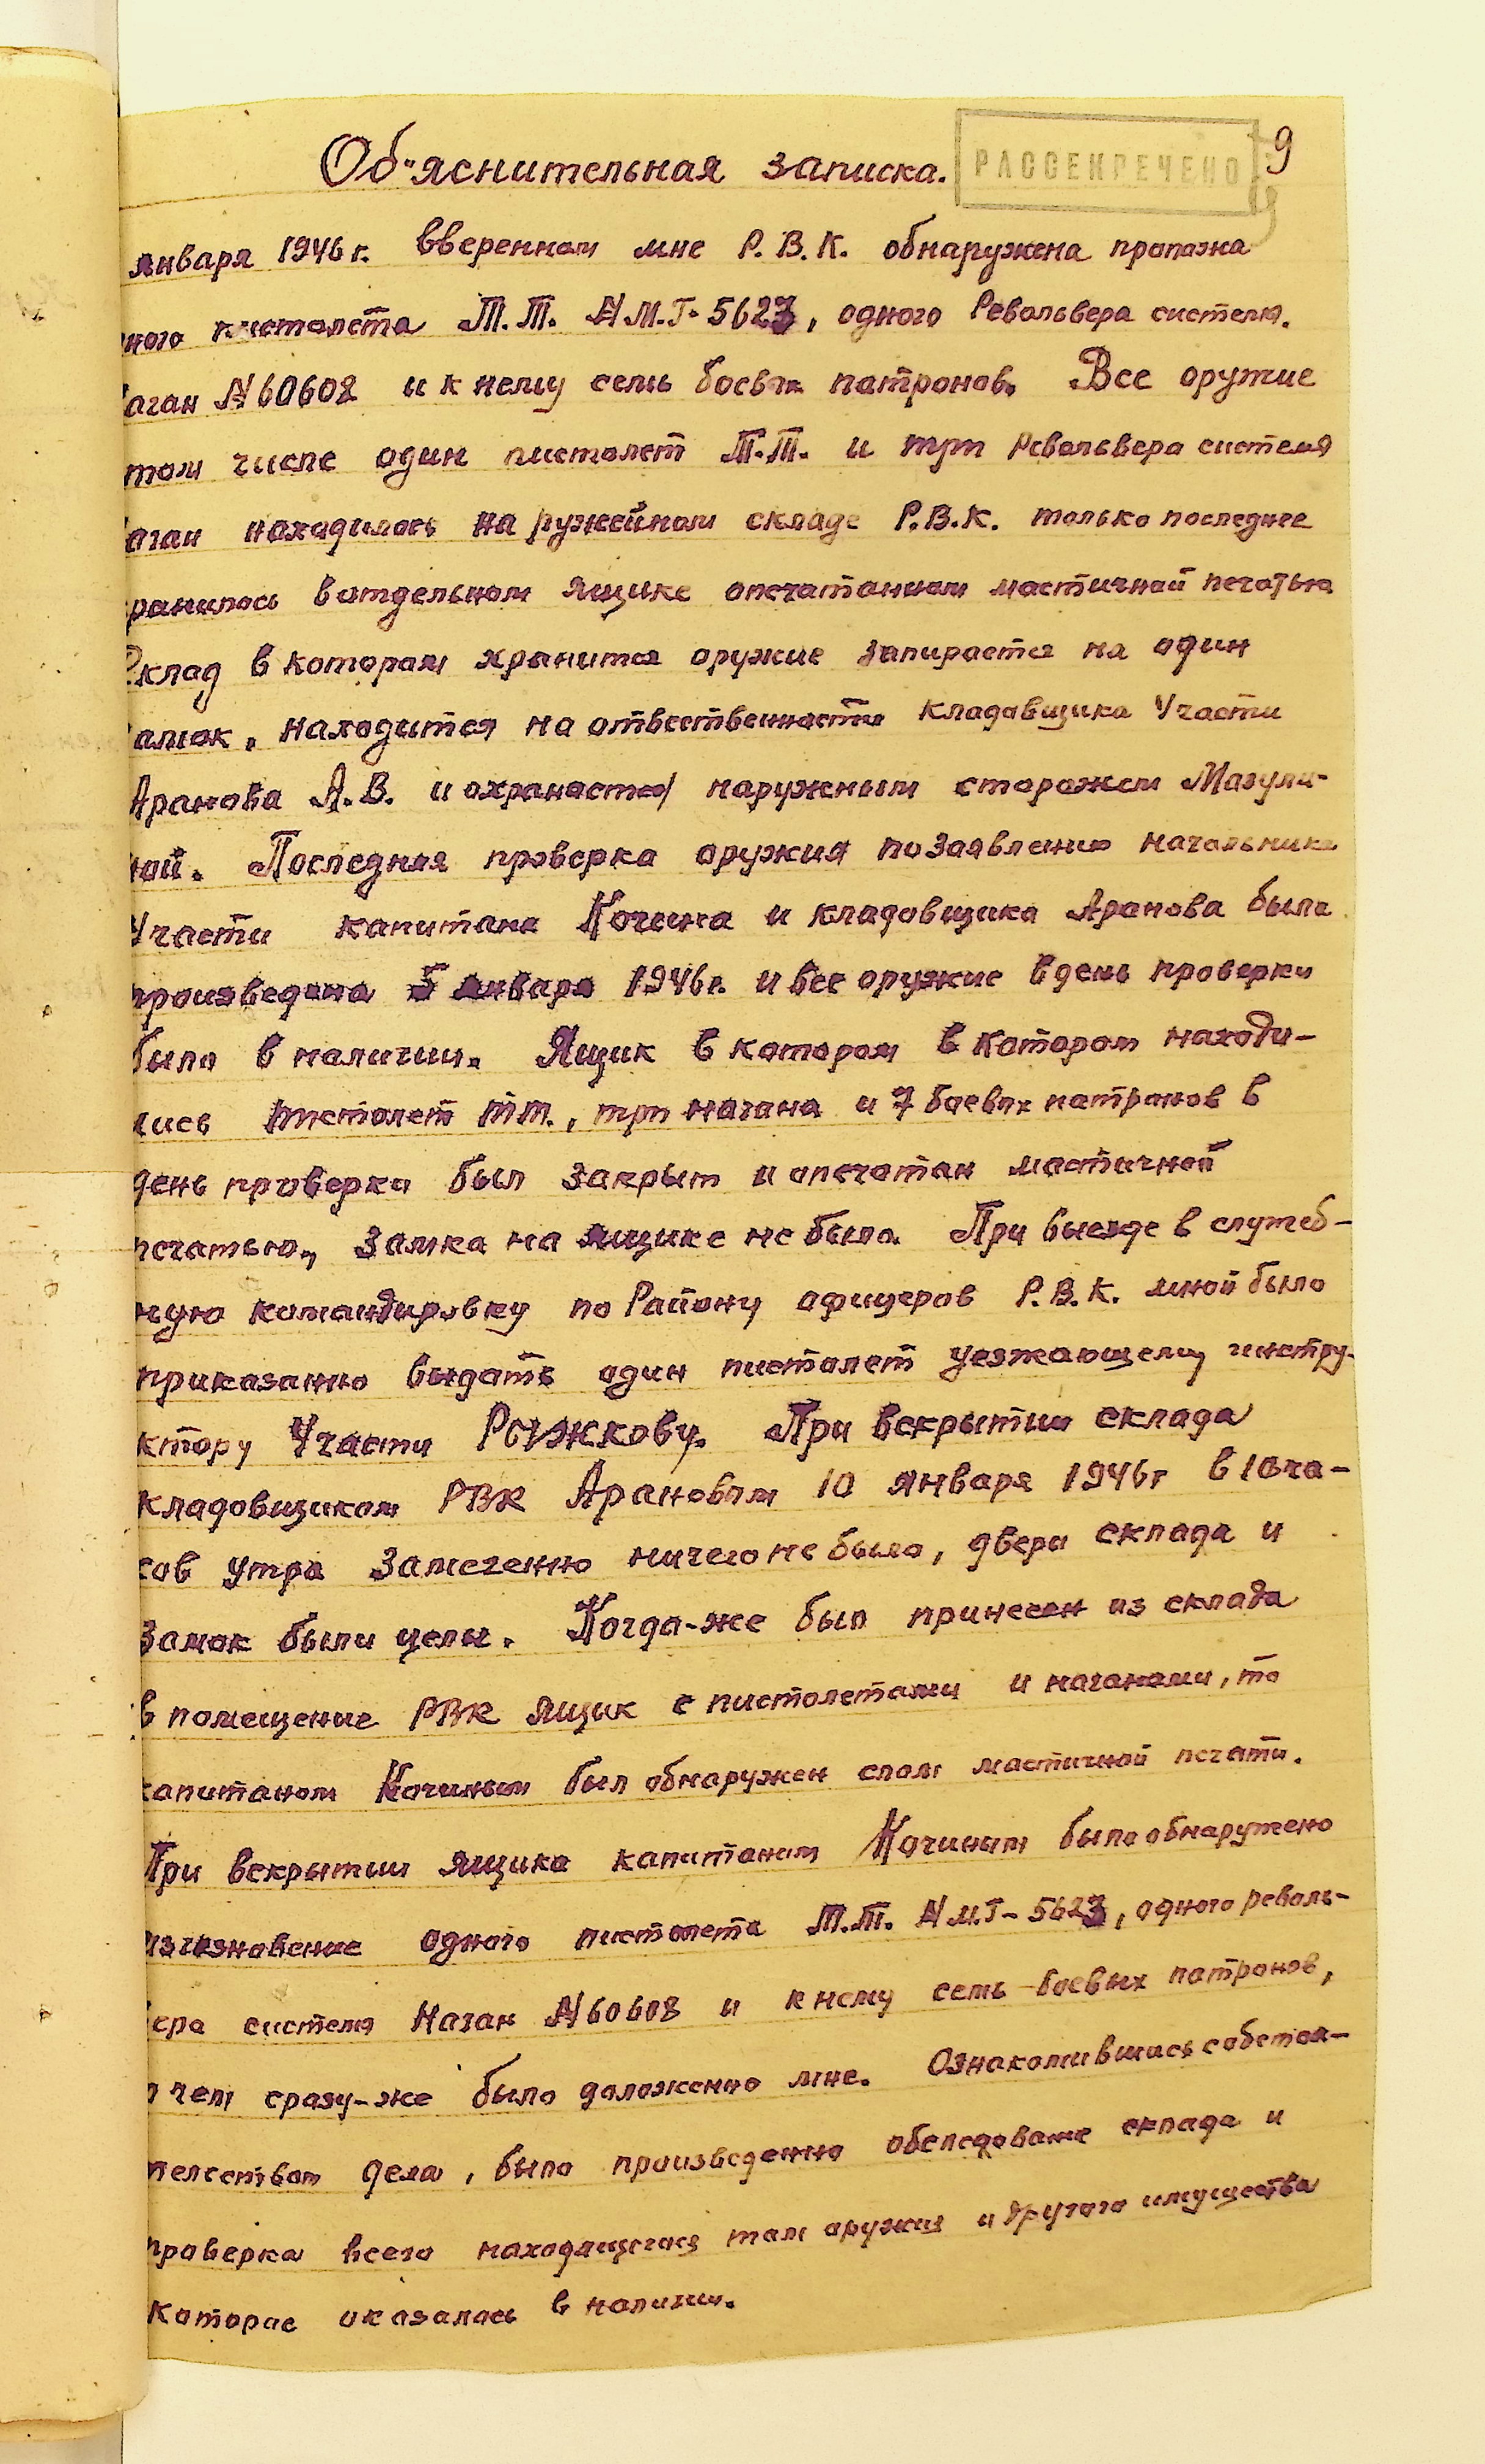 Об"яснительная записка.
РАССЕКРЕЧЕНО
9
января 1946 г. вверенном мне Р.В.К. обнаружена пропажа
ного пистолета Т.Т. № М.Г-5623, одного Револьвера систем.
аган №60608 и к нему семь боевых патронов. Все оружие
том числе один пистолет Т.Т. и три Револьвера системы
аган находилось на ружейном складе Р.В.К. только последнее
ранилось в отдельном ящике опечатанном мастичной печатью
Склад в котором хранится оружие запирается на один
амок, находится на ответственности кладовщика Участи
Аранова А.В. и охраняется наружным сторожем Мазули-
ной. Последняя проверка оружия по заявлению начальника
Участи капитана Кочина и кладовщика Аранова была
произведана 5 января 1946 г. и все оружие в день проверки
было в наличии. Ящик в котором в котором находи-
лись пистолет ТТ., три нагана и 7 боевых патронов в
день проверки был закрыт и опечатан мастичной
печатью, замка на ящике не было. При выезде в служеб-
ную командировку по Району офицеров Р.В.К. мной было
приказанно выдать один пистолет уезжающему инстру-
ктору Участи Рыжкову. При вскрытии склада
кладовщиком РВК Арановым 10 января 1946 г в 10 ча-
сов утра замеченно ничего не было, двери склада и
замок были целы. Когда-же был принесен из склада
в помещение РВК ящик с пистолетами и наганами, то
капитаном Кочиным был обнаружен слом мастичной печати.
При вскрытии ящика капитаном Кочиным было обнаружено
изчезновение одного пистолета Т.Т. № М.Г-5623, одного револь-
вера системы Наган №60608 и к нему семь боевых патронов,
о чем сразу-же было доложенно мне. Ознакомившись собстоя-
телством дела, было произведенно обследование склада и
проверка всего находящегося там оружия и другого имущества
которое оказалось в наличии.